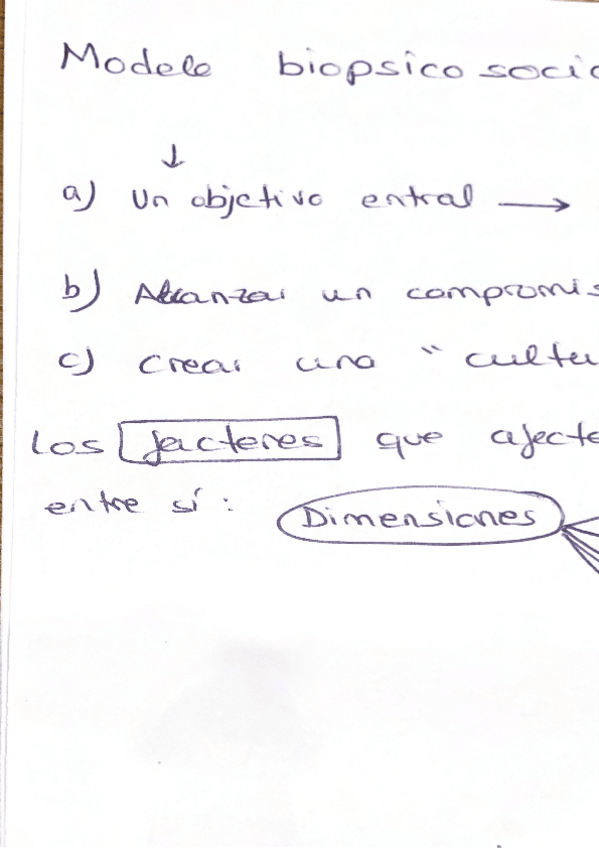 Modelo biopsico socio
↓
a) Un objetivo entral →
b) Alcanzar un compromis
c) Crear una " cultu
Los factores que afecta
entre sí : Dimensiones